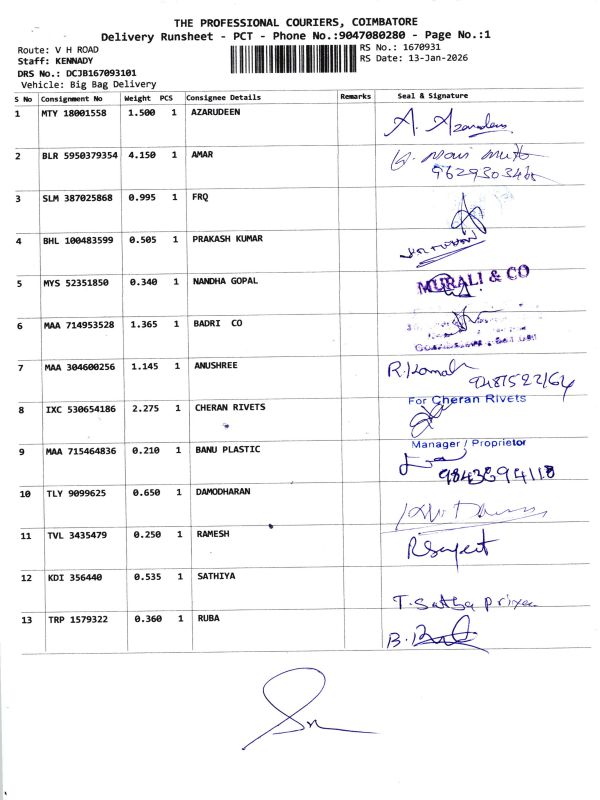 THE PROFESSIONAL COURIERS, COIMBATORE
Delivery Runsheet - PCT - Phone No.:9047080280 - Page No.:1
Route: V H ROAD
RS No.: 1670931
Staff: KENNADY
RS Date: 13-Jan-2026
DRS No.: DCJB167093101
Vehicle: Big Bag Delivery
S No Consignment No Weight PCS Consignee Details Remarks Seal & Signature
1 MTY 18001558 1.500 1 AZARUDEEN A. Azarudeen
2 BLR 5950379354 4.150 1 AMAR
3 SLM 387025868 0.995 1 FRQ
4 BHL 100483599 0.505 1 PRAKASH KUMAR
5 MYS 52351850 0.340 1 NANDHA GOPAL MURALI & CO
6 MAA 714953528 1.365 1 BADRI CO
7 MAA 304600256 1.145 1 ANUSHREE R. Kamal
8 IXC 530654186 2.275 1 CHERAN RIVETS For Cheran Rivets
Manager / Proprietor
9 MAA 715464836 0.210 1 BANU PLASTIC 9843894118
10 TLY 9099625 0.650 1 DAMODHARAN
11 TVL 3435479 0.250 1 RAMESH
12 KDI 356440 0.535 1 SATHIYA T. Sathya priya
13 TRP 1579322 0.360 1 RUBA B.